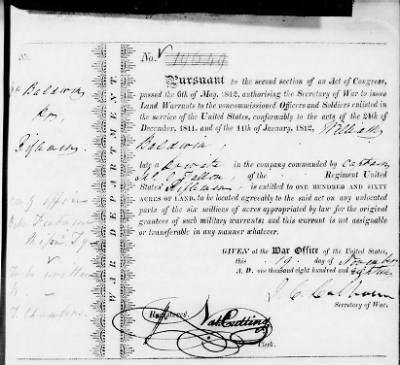 No. 19649
Pursuant to the second section of an Act of Congress,
passed the 6th of May, 1812, authorising the Secretary of War to issue
Land Warrants to the noncommissioned Officers and Soldiers enlisted in
the service of the United States, conformably to the acts of the 24th of
December, 1811, and of the 11th of January, 1812, William
Baldwin,
late a private in the company commanded by Captain
of the Regiment United
States Riflemen, is entitled to ONE HUNDRED AND SIXTY
ACRES OF LAND, to be located agreeably to the said act on any unlocated
parts of the six millions of acres appropriated by law for the original
grantees of such military warrants; and this warrant is not assignable
or transferable in any manner whatever.
GIVEN at the War Office of the United States,
this 19 day of November
A. D. one thousand eight hundred and eighteen
J. C. Calhoun
Secretary of War.
Registered, Nat Cutting
Clerk.
WAR DEPARTMENT
Baldwin
Riflemen